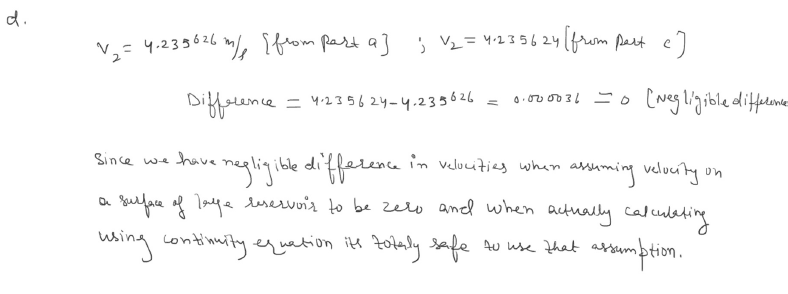 d.
V₂ = 4.235626 m/s {from part a} ; V₂ = 4.235624 [from part c]
Difference = 4.235624-4.235626 = 0.000036 = 0 [Negligible difference
Since we have negligible difference in velocities when assuming velocity on
a surface of large reservoir to be zero and when actually calculating
using continuity equation its totally safe to use that assumption.